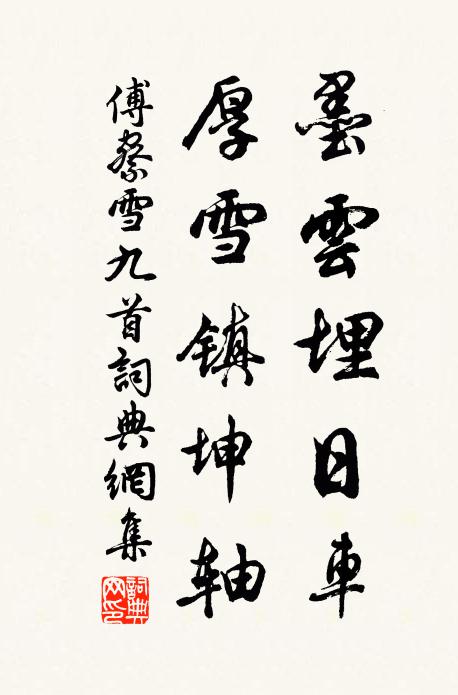 墨雲埋日車
厚雪镇坤轴
傅察雪九首詞典網集
詞典网印